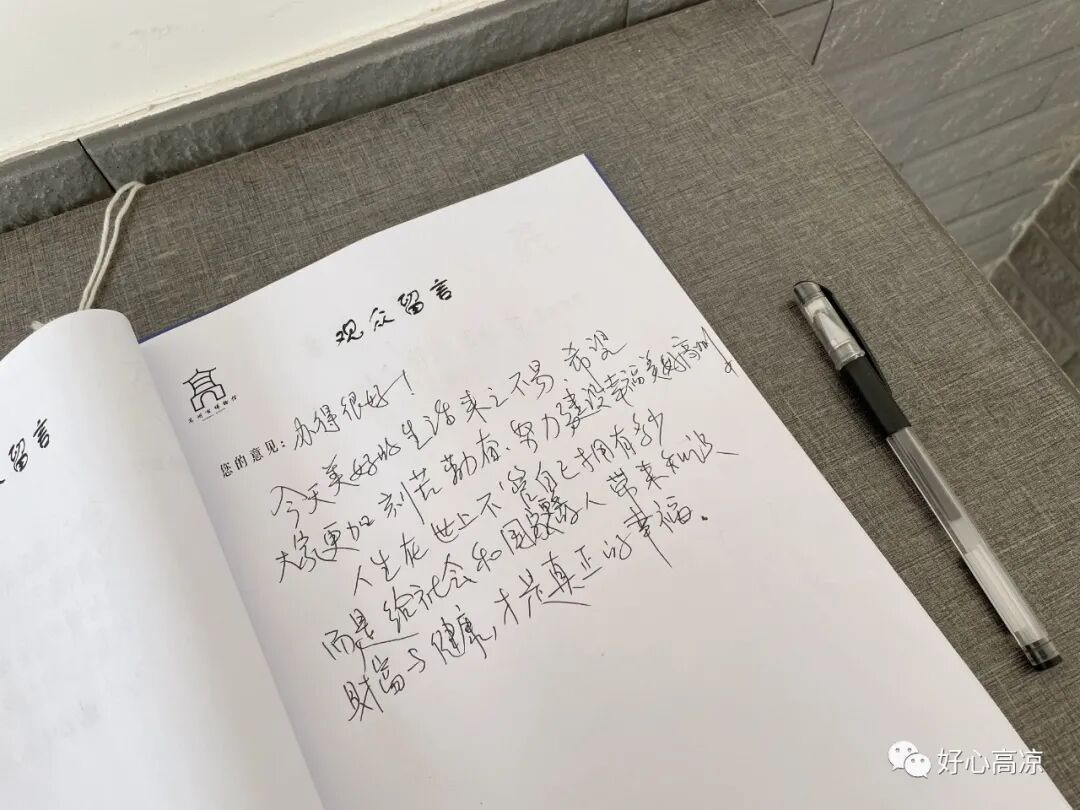 留言
观众留言
高州市博物馆
您的意见：办得很好！
今天美好的生活来之不易，希望
大家更加刻苦勤奋，努力建设幸福美好高州！
人生在世上不管自己拥有多少
而是给社会和国家 人带来知识
财富与健康，才是真正的幸福。
好心高凉